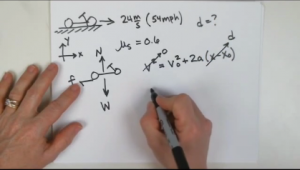 24 m/s (54mph) d = ?
y
x
μs = 0.6
N
f
W
v² = v₀² + 2a(x - x₀)
0
d